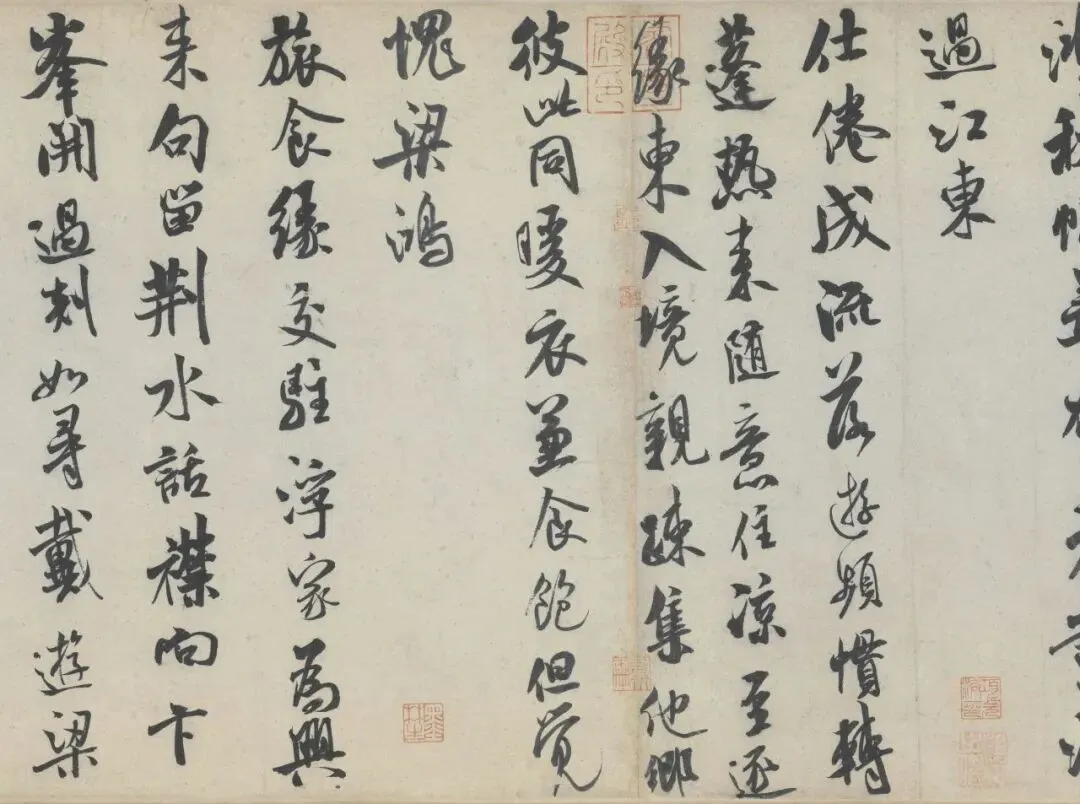 過江東
仕倦成流落遊頻慣轉
蓬熱来随意住凉至逐
緣東入境親疎集他鄉
彼此同暖衣兼食飽但覺
愧梁鴻
旅食緣交駐浮家為興
来句留荆水話襟向卞
峯開過剡如尋戴遊梁